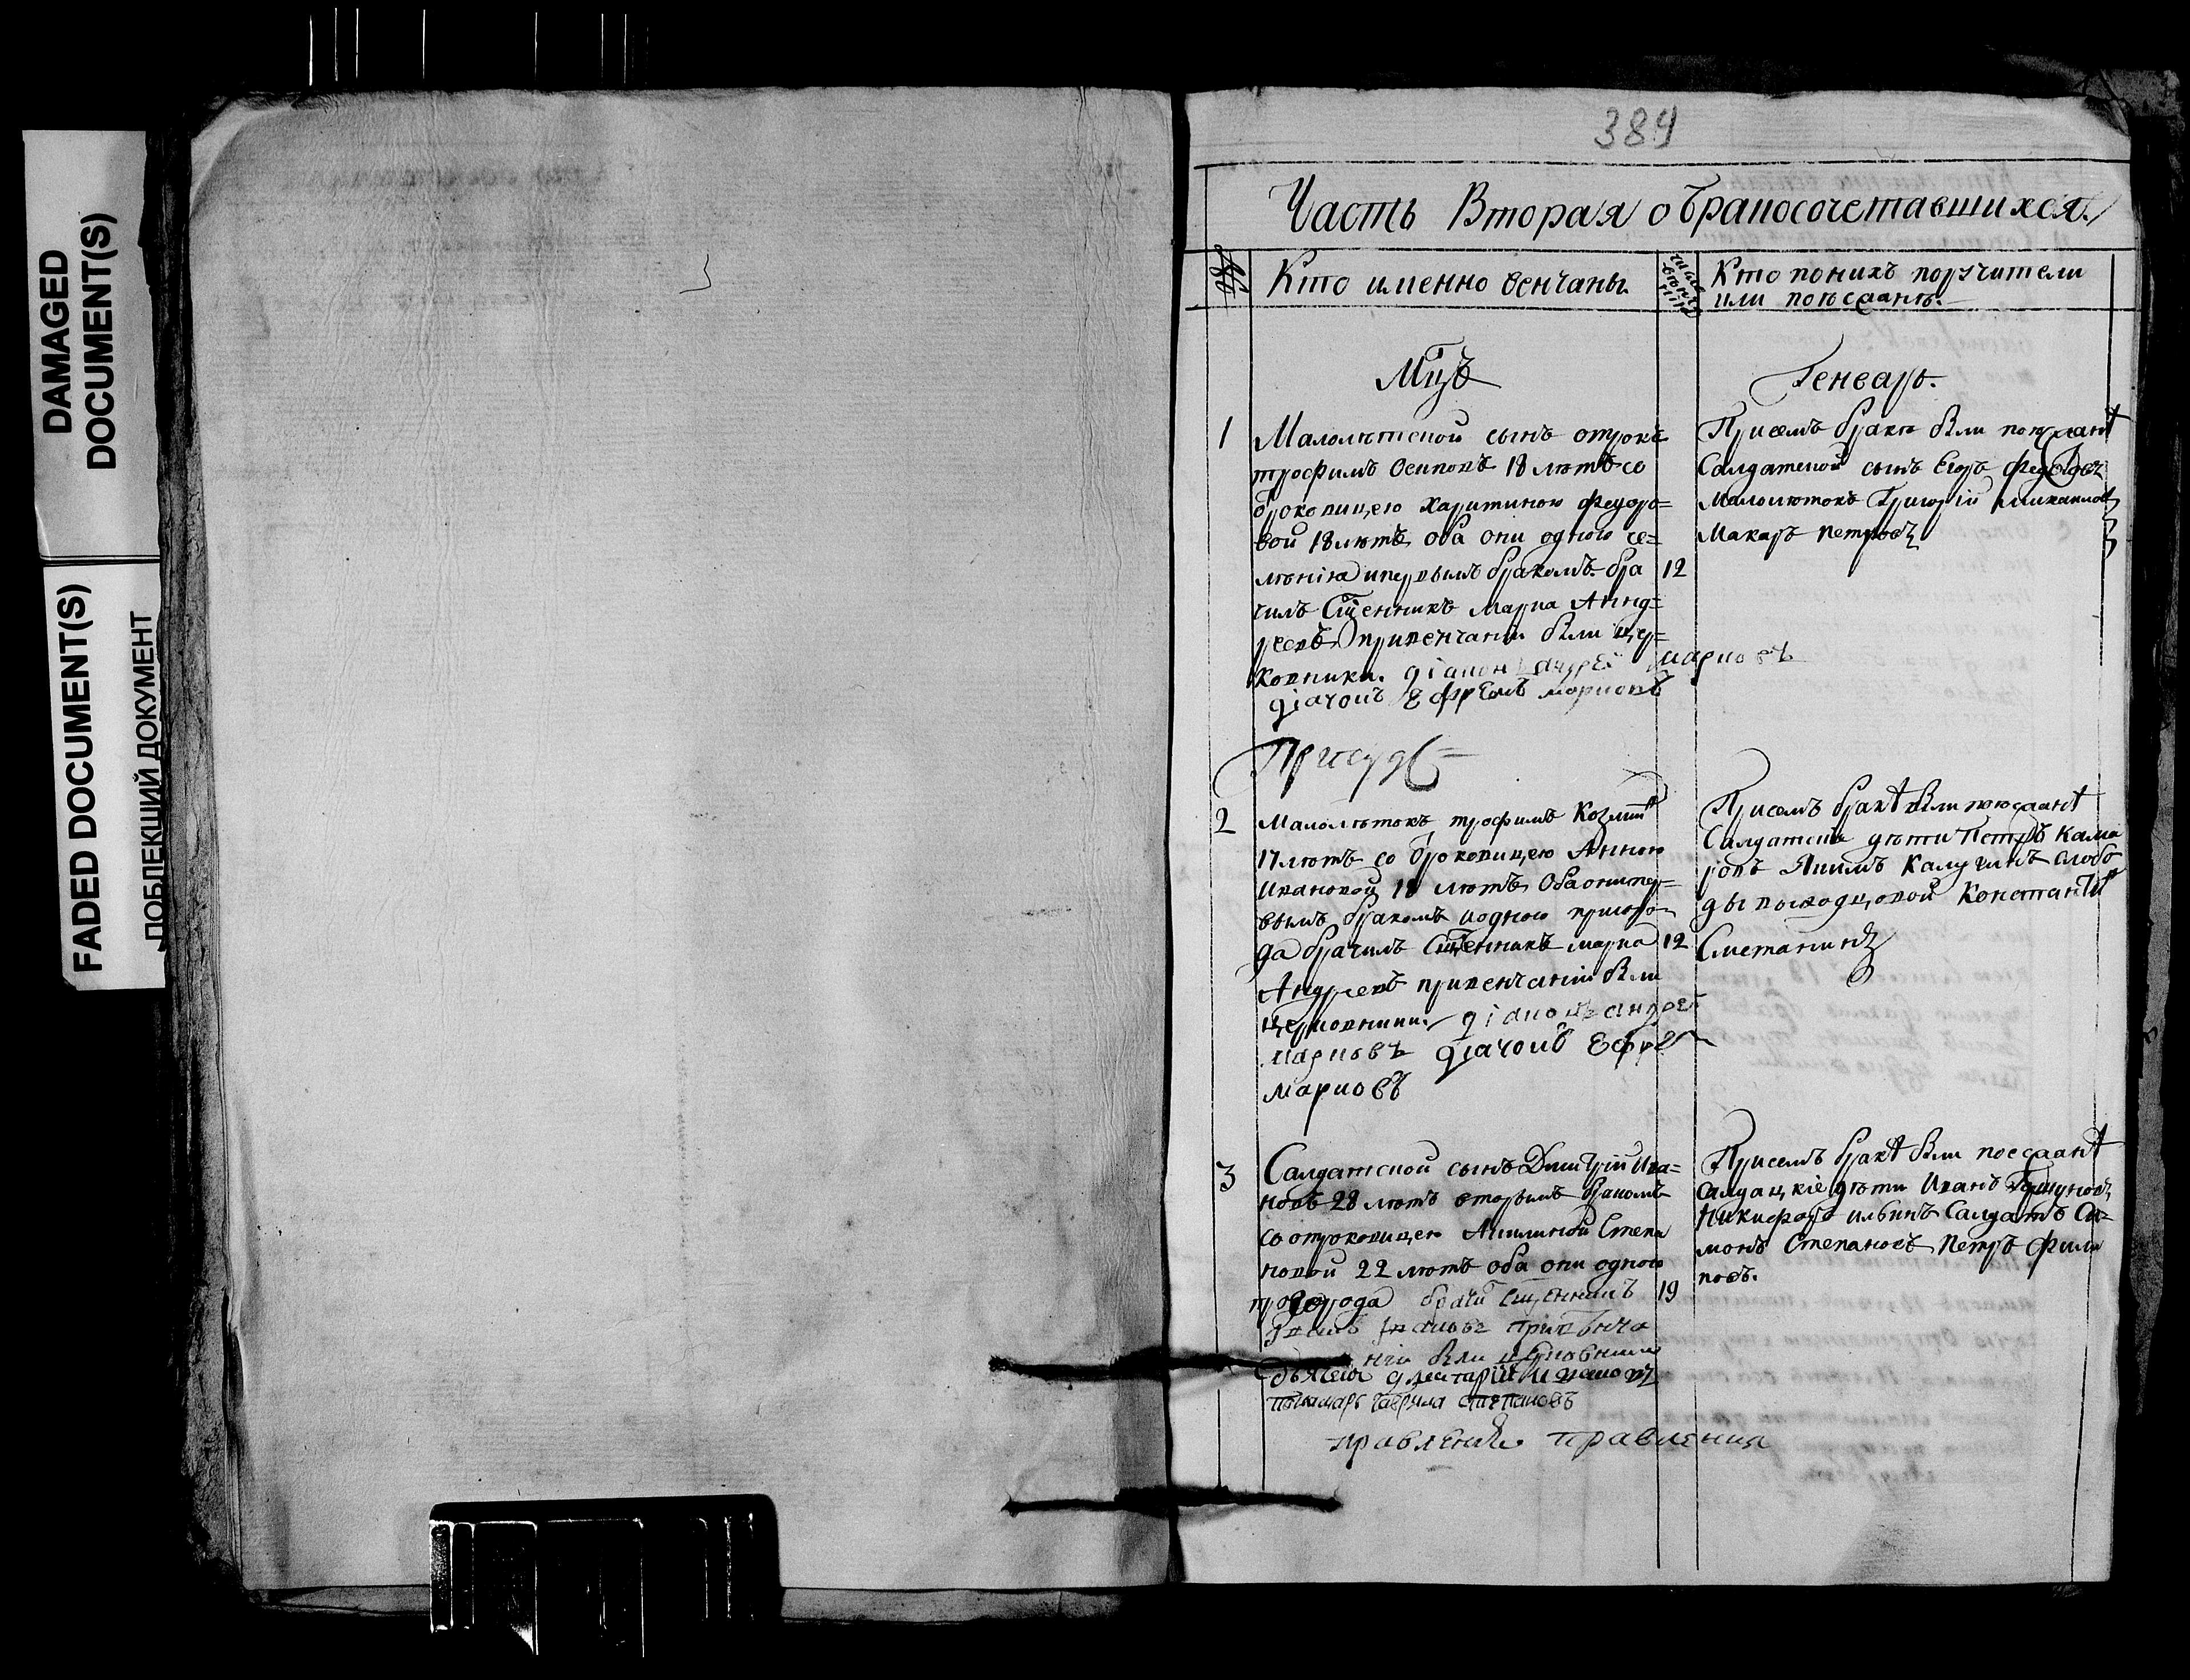 DAMAGED
DOCUMENT(S)
FADED DOCUMENT(S)
ПОБЛЕКЩИЙ ДОКУМЕНТ
384
Часть Вторая о бракосочетавшихся.
Кто именно венчаны.
Кто поних поручители
или поѣсаанѣ.
Мцъ
Генварь.
1
Малолѣтской сынъ отрокъ
трофимъ Осиповъ 18 лѣтъ со
троковицею Харитиною Федоро=
вой 18 лѣтъ оба они одного се=
лѣнія ипервымъ бракомъ бра
чилъ Сщенникъ Марка Анд=
реевъ привенчаніи были цер=
ковники. діакон андрей марковъ
діачокъ Ефремъ марковъ
12
Присемъ бракѣ были поѣсаанѣ
Салдатской сынъ Егоръ Федоровъ
Малолѣтокъ Григорій Михаилов
Макаръ Петровъ
2
Малолѣтокъ трофимъ Козмин
17 лѣтъ со троковицею Анною
Ивановой 18 лѣтъ Оба они пер=
вымъ бракомъ иодного пригоро
да брачилъ Сщенникъ марка
Андреевъ привенчаніи были
церковники. діаконъ андрей
марковъ діачокъ Ефре
марковъ
12
Присемъ бракѣ были поѣсаанѣ
Салдатскія дѣти Петръ Кама
ровъ Якимъ Калугинъ слобо
ды
Константи
Сметанинъ
3
Салдатской сынъ Дмитрій Ива=
новъ 28 лѣтъ вторымъ бракомъ
со отроковицею Акилиной Степа
новой 22 лѣтъ оба они одного
пригорода брачи Сщенникъ
привѣнча
ніи были церковники
дьячекъ
понамарь гаврила степановъ
правлении правления
19
Присемъ бракѣ были поесаанѣ
Салдацкіе дѣти Иванъ
Никифоръ ильинъ Салдатъ Си=
монъ Степановъ Петръ Фили
повъ.